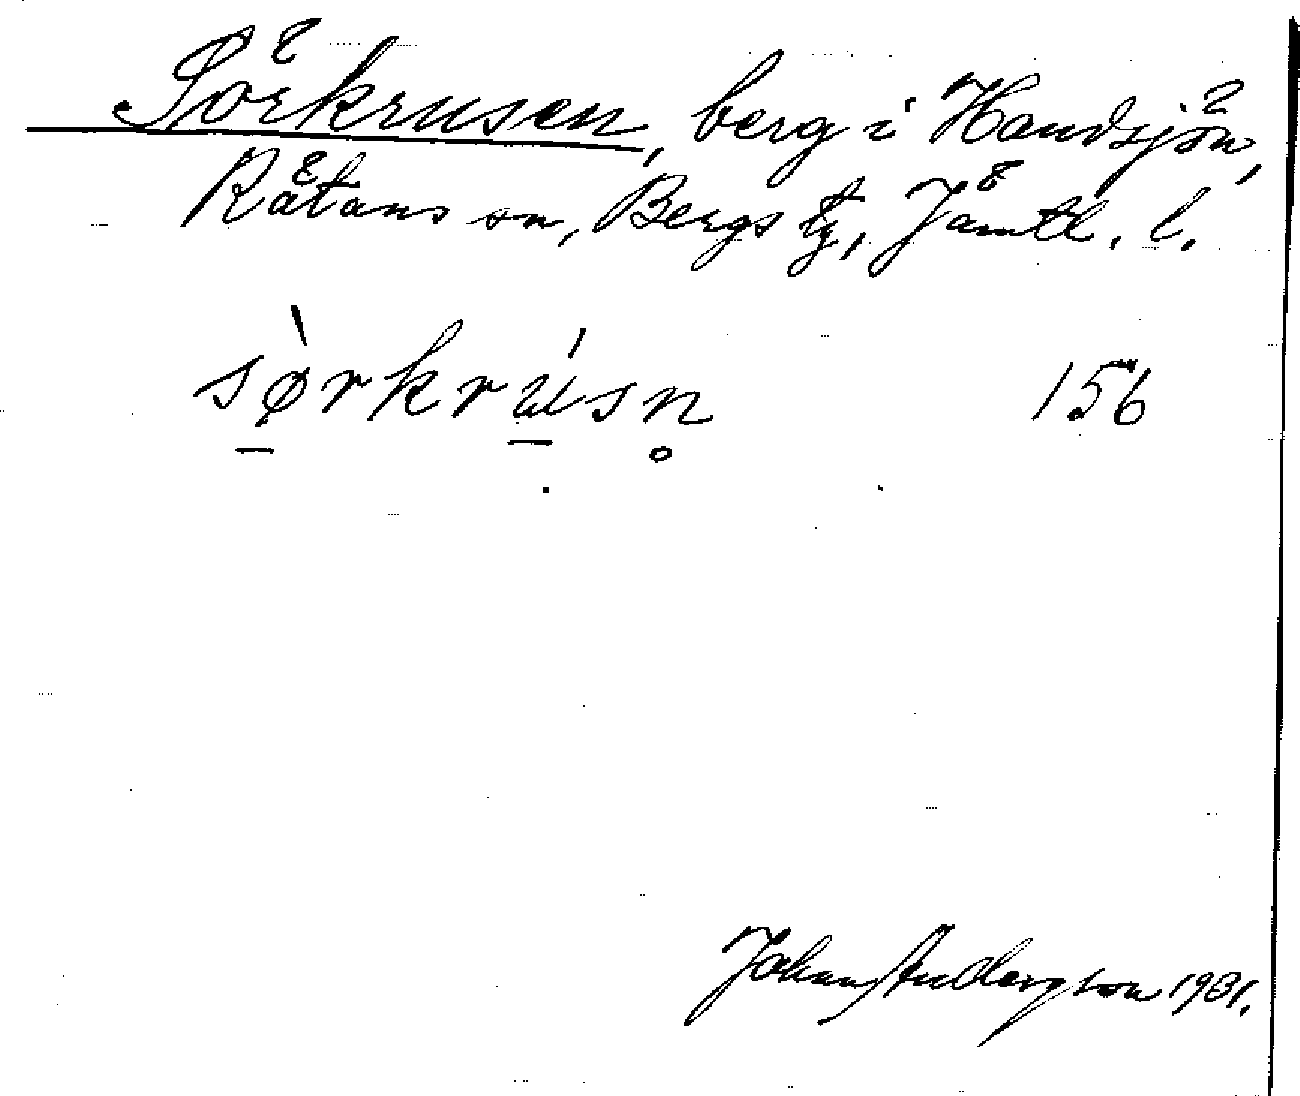 Sörkrusen, berg i Handsjön,
Råtans sn, Bergs tg, Jämtl. l.
sø̱̀rkrṵ́sn̥ 156
Johan Anderszon 1931.